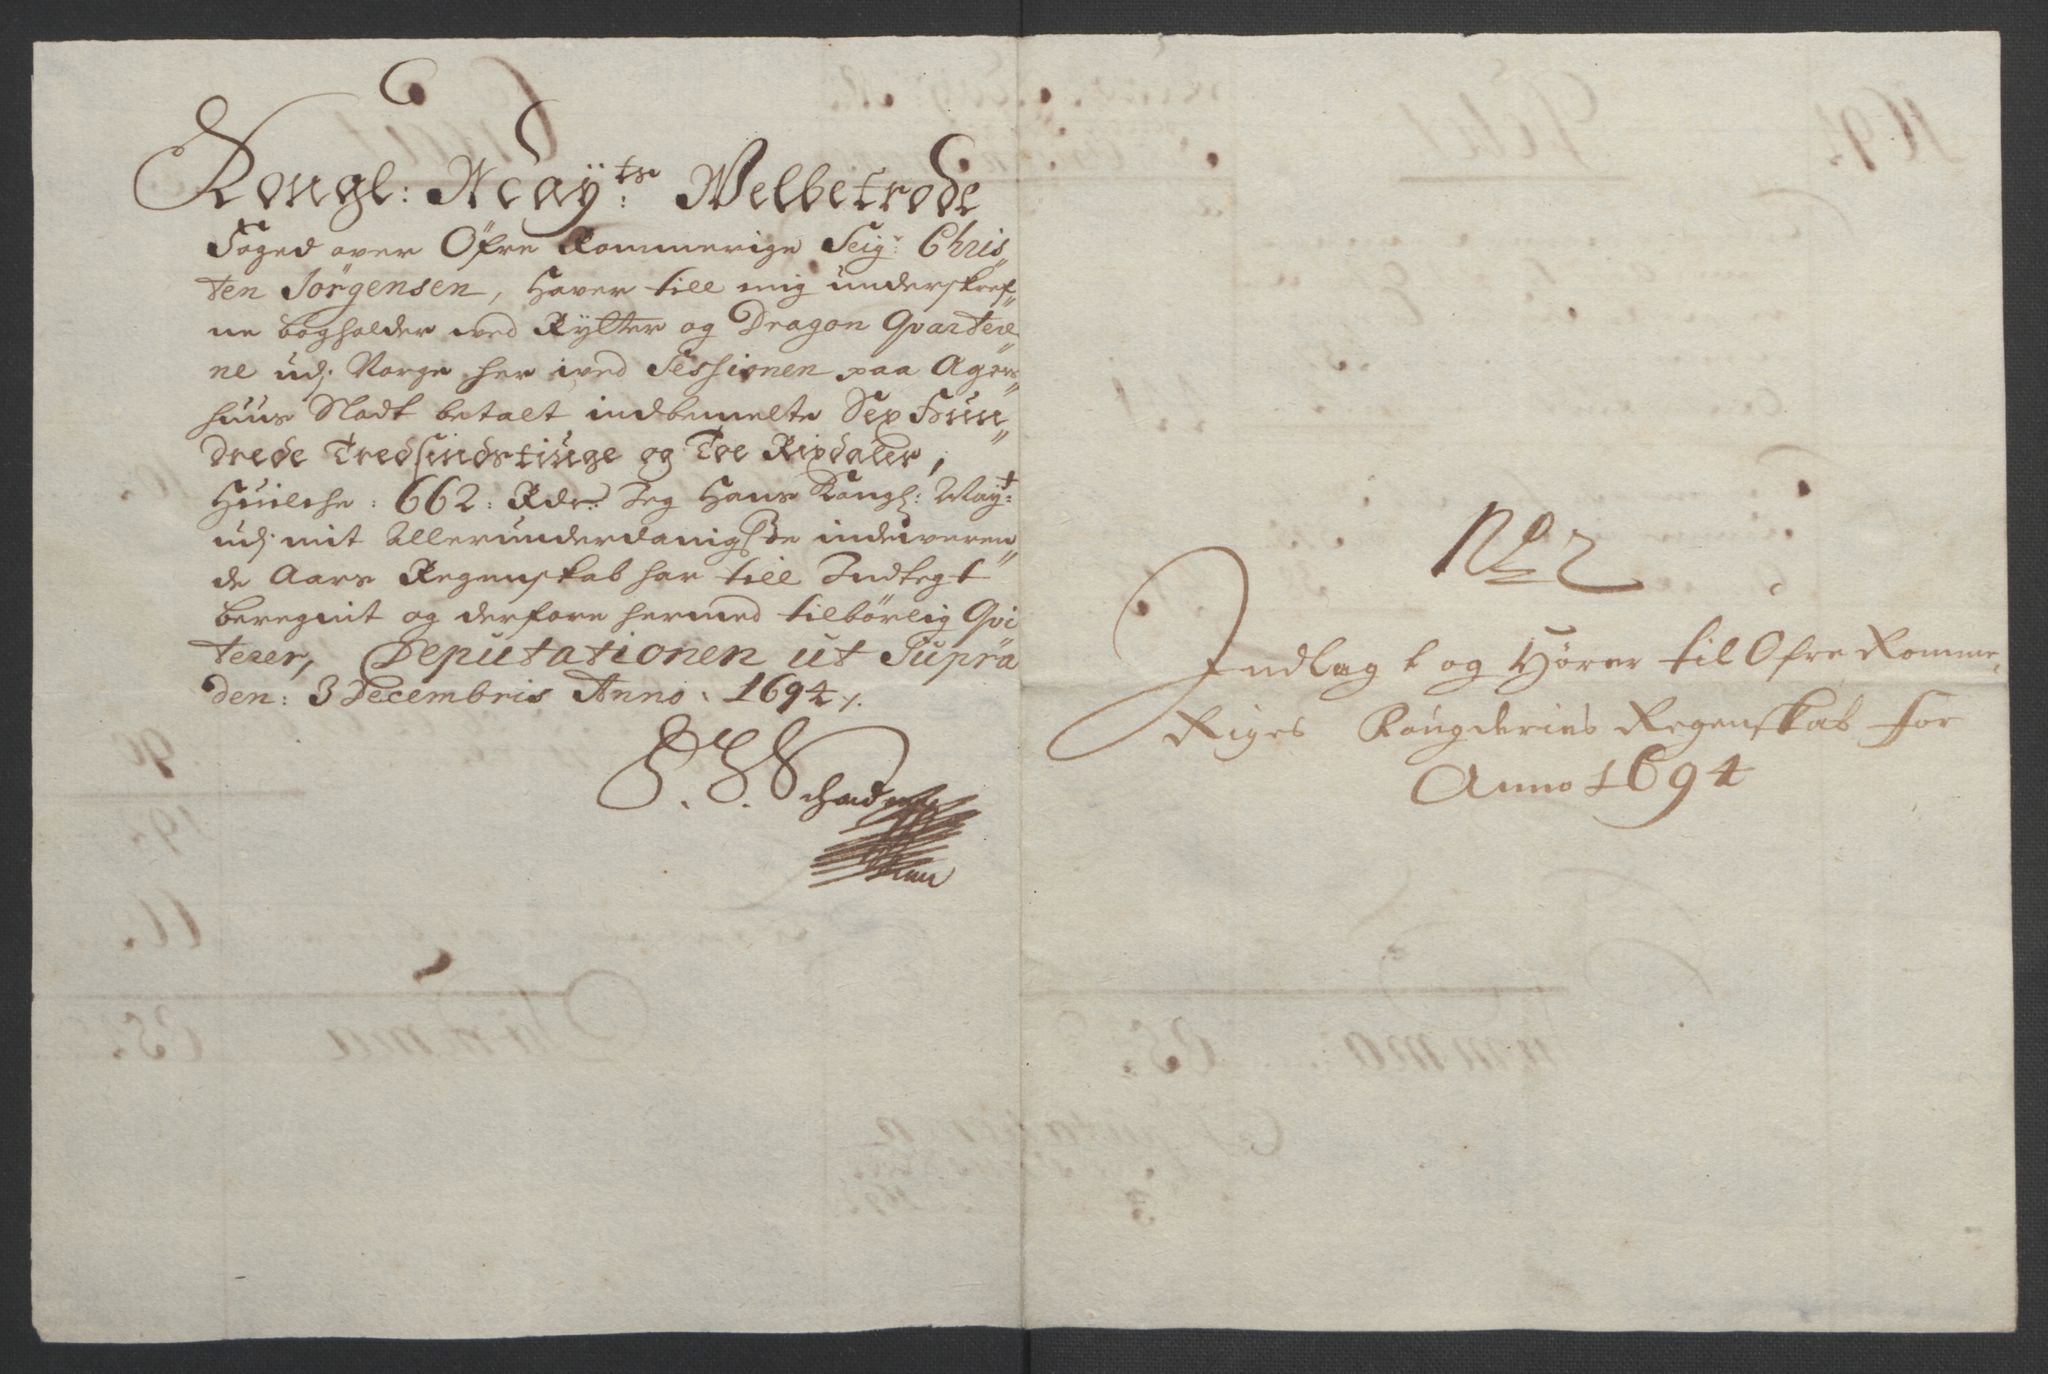 Kongl: Mayts: Welbetrode
Foged over Öfre Rommerige Seigr: Chris„
ten Jörgensen, Haver till mig underskref„
ne bogholder ved Rytter og Dragon Qvartere
ne udj Norge her ved Sessionen paa Agers„
huus Slodt betalt indbemelte Sex Hun„
drede Tredsindstiuge og Toe Rixdaler,
Huilche : 662 : Rdr: Jeg Hans Kongl: Mayt:
udj mit Allerunderdanigste indeverен„
de Aars Regenskab har till Indtegt
beregnit og derfore hermed tilbörlig Qvi
terer, Deputationen ut Supra
den: 3 Decembris Anno : 1694 ⁒.
No 2
Indlagt og Hörer til Ofre Romme„
Riges Rougderies Regenskab for
Anno 1694